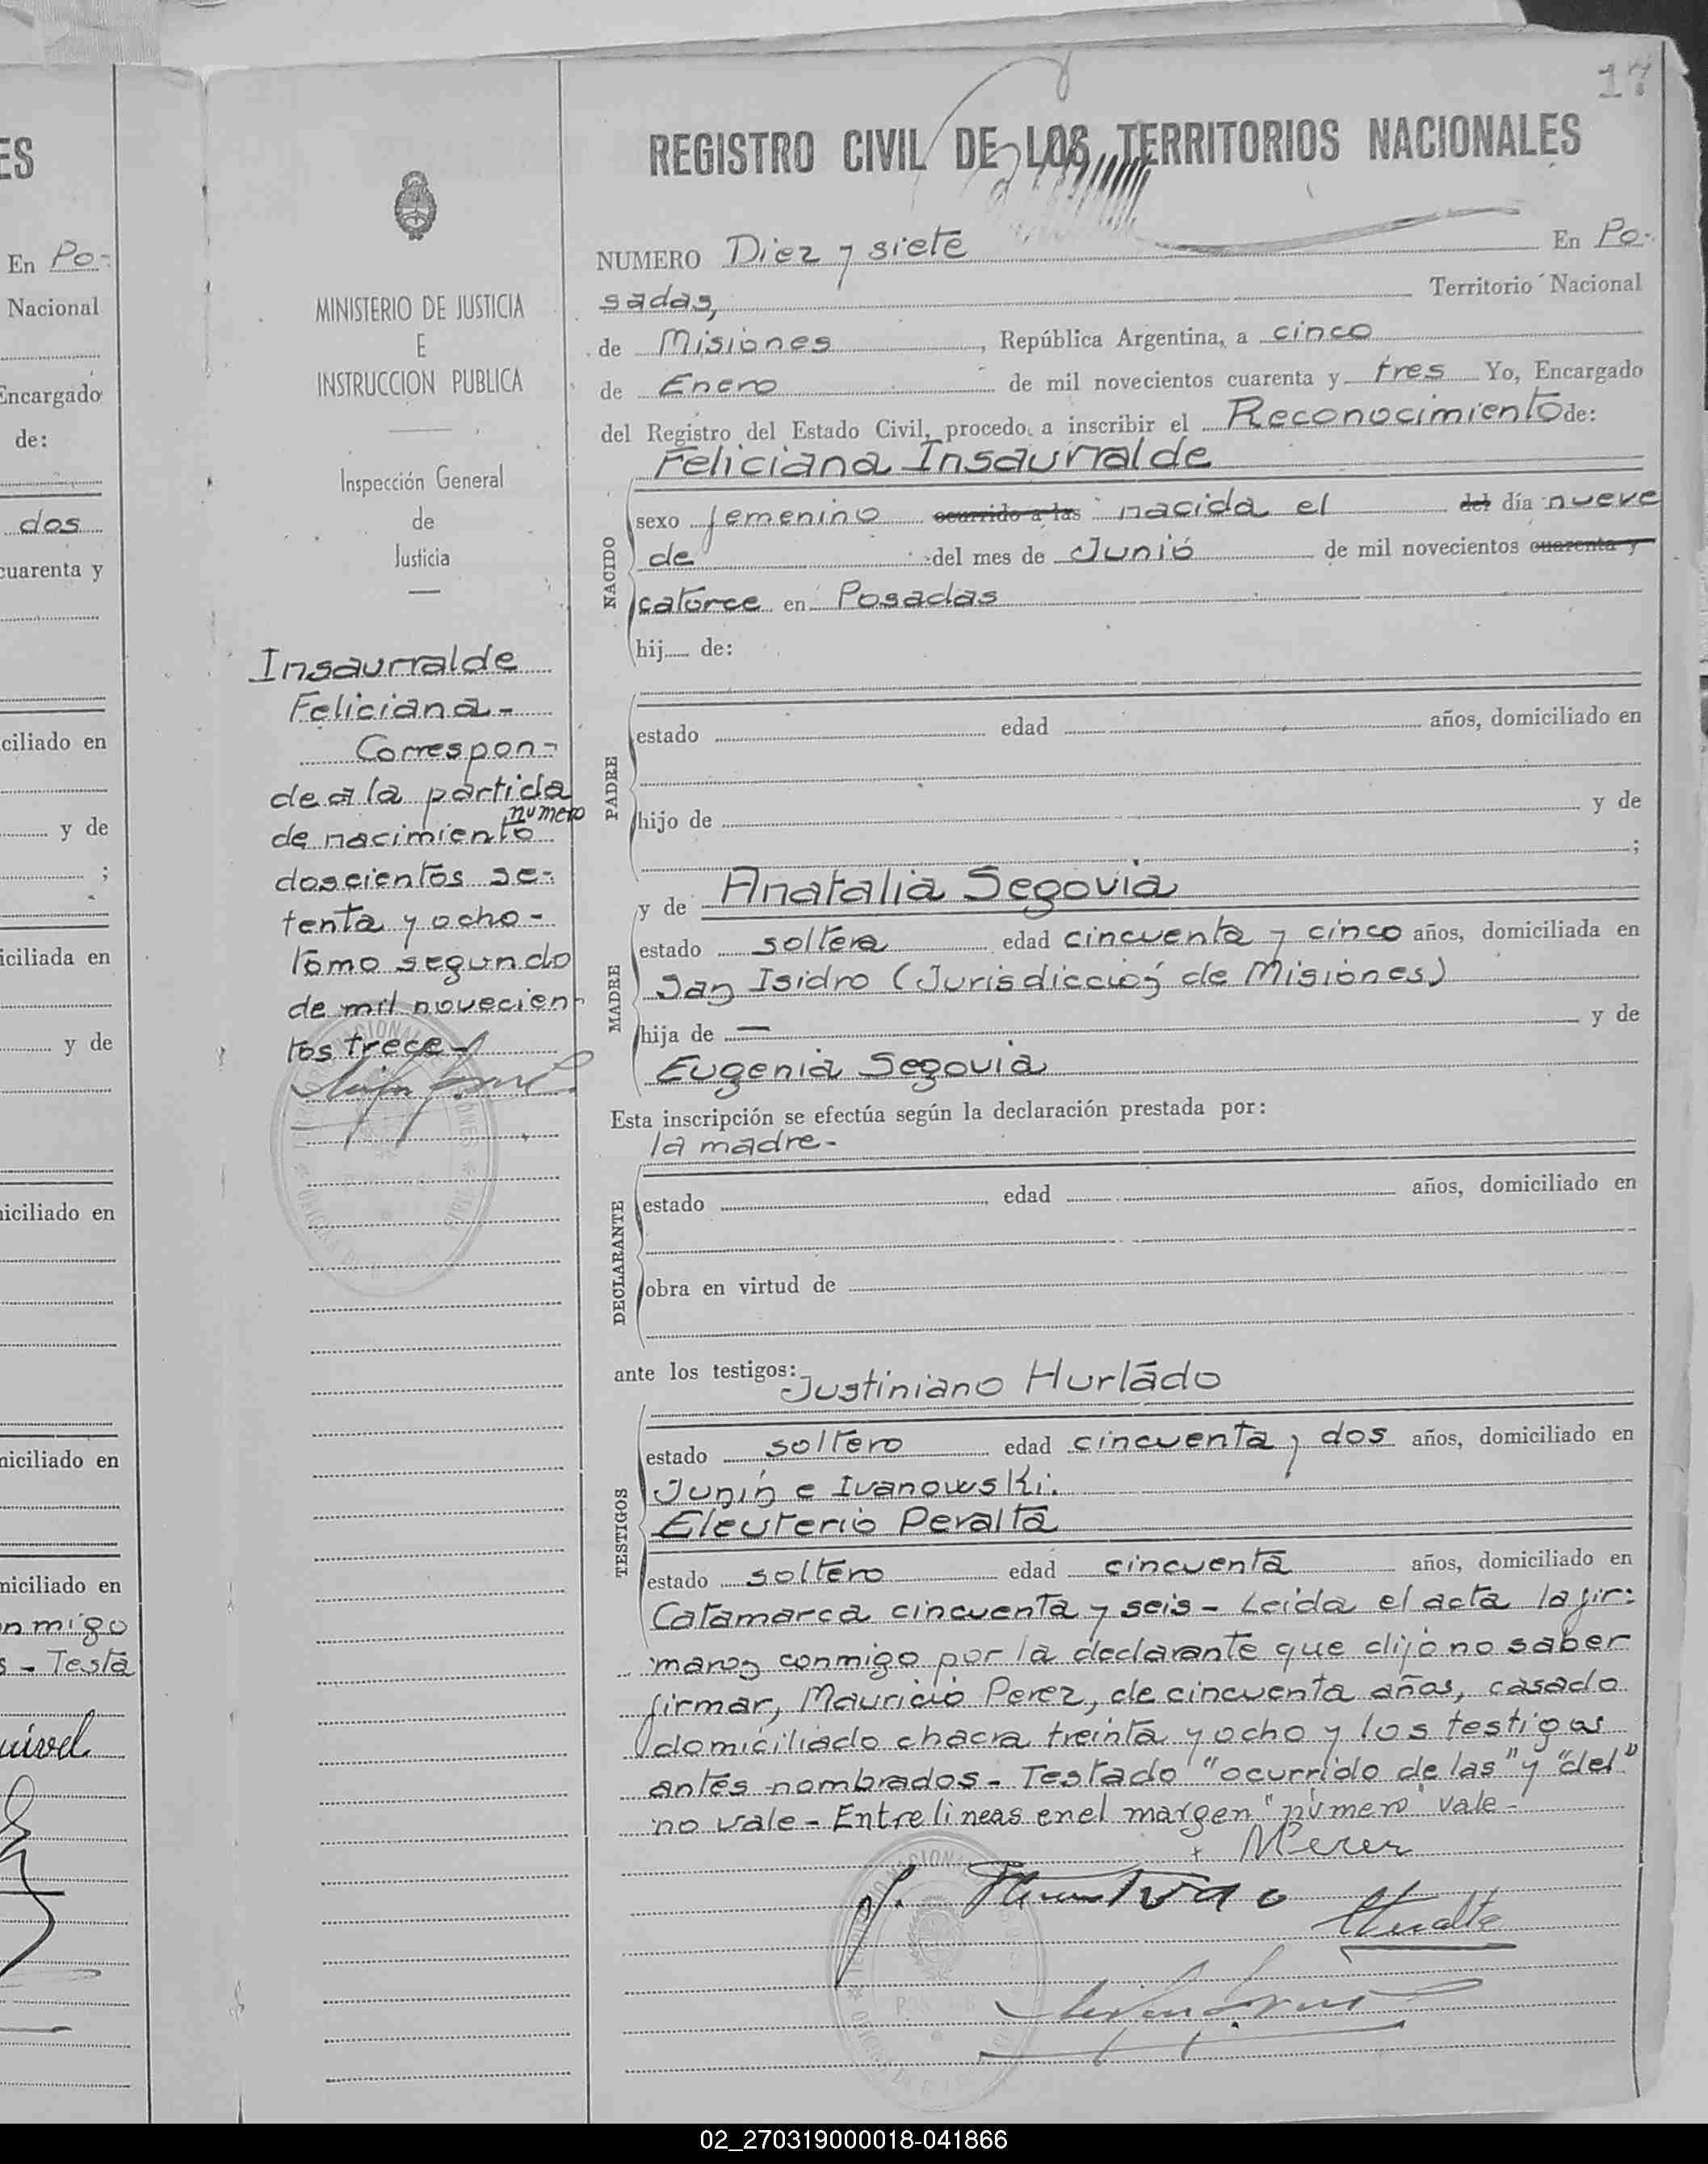 ES
En Po-
Nacional
Encargado
de:
dos
cuarenta y
ciliado en
y de
;
iciliada en
y de
iciliado en
niciliado en
niciliado en
nmigo
s - Testa
MINISTERIO DE JUSTICIA
E
INSTRUCCION PUBLICA
Inspección General
de
Justicia
Insaurralde
Feliciana-
Correspon-
de a la partida
numero
de nacimiento
doscientos se-
tenta y ocho-
tomo segundo
de mil novecien-
tos trece-
17
REGISTRO CIVIL DE LOS TERRITORIOS NACIONALES
NUMERO Diez y siete En Po-
sadas, Territorio Nacional
de Misiones, República Argentina, a cinco
de Enero de mil novecientos cuarenta y tres Yo, Encargado
del Registro del Estado Civil, procedo a inscribir el Reconocimiento de:
Feliciana Insaurralde
NACIDO
sexo femenino ocurrido a las nacida el del día nueve
de del mes de Junio de mil novecientos cuarenta y
catorce en Posadas
hij de:
PADRE
estado edad años, domiciliado en
hijo de y de
;
y de Anatalia Segovia
MADRE
estado soltera edad cincuenta y cinco años, domiciliada en
San Isidro (Jurisdicción de Misiones)
hija de — y de
Eugenia Segovia
Esta inscripción se efectúa según la declaración prestada por:
la madre-
DECLARANTE
estado edad años, domiciliado en
obra en virtud de
ante los testigos: Justiniano Hurtado
TESTIGOS
estado soltero edad cincuenta y dos años, domiciliado en
Junín e Ivanowski.
Eleuterio Peralta
estado soltero edad cincuenta años, domiciliado en
Catamarca cincuenta y seis - Leida el acta la fir-
maron conmigo por la declarante que dijo no saber
firmar, Mauricio Perez, de cincuenta años, casado
domiciliado chacra treinta y ocho y los testigos
antes nombrados - Testado "ocurrido de las" y "del"
no vale - Entre lineas en el margen "número" vale-
MPerez
J. Hurtado
Peralta
02_270319000018-041866